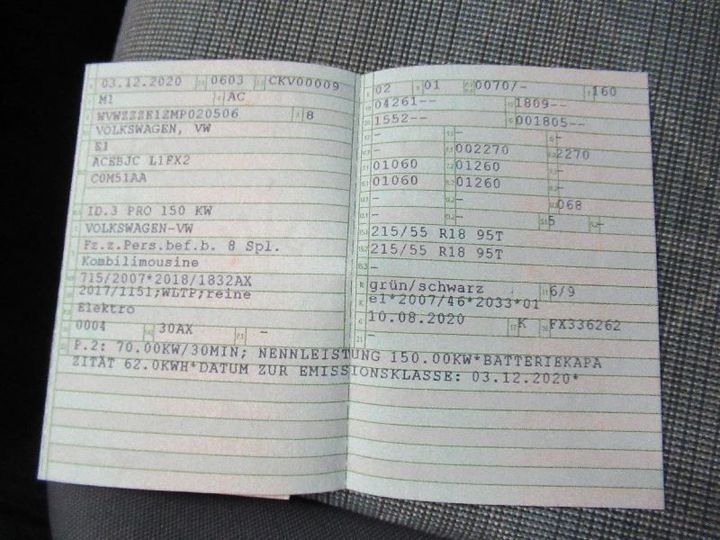 03.12.2020 0603 CKV00009
M1 AC
WVWZZZE1ZMP020506 8
VOLKSWAGEN, VW
E1
ACEBJC L1FX2
C0M51AA
ID.3 PRO 150 KW
VOLKSWAGEN-VW
Fz.z.Pers.bef.b. 8 Spl.
Kombilimousine
715/2007*2018/1832AX
2017/1151;WLTP;reine
Elektro
0004 30AX -
02 01 0070/- 160
04261-- 1809--
1552-- 001805--
- - -
- 002270 2270
01060 01260 -
01060 01260 -
- - 068
- - 5 -
215/55 R18 95T
215/55 R18 95T
-
grün/schwarz 6/9
e1*2007/46*2033*01
10.08.2020 K FX336262
-
P.2: 70.00KW/30MIN; NENNLEISTUNG 150.00KW*BATTERIEKAPA
ZITÄT 62.0KWH*DATUM ZUR EMISSIONSKLASSE: 03.12.2020*